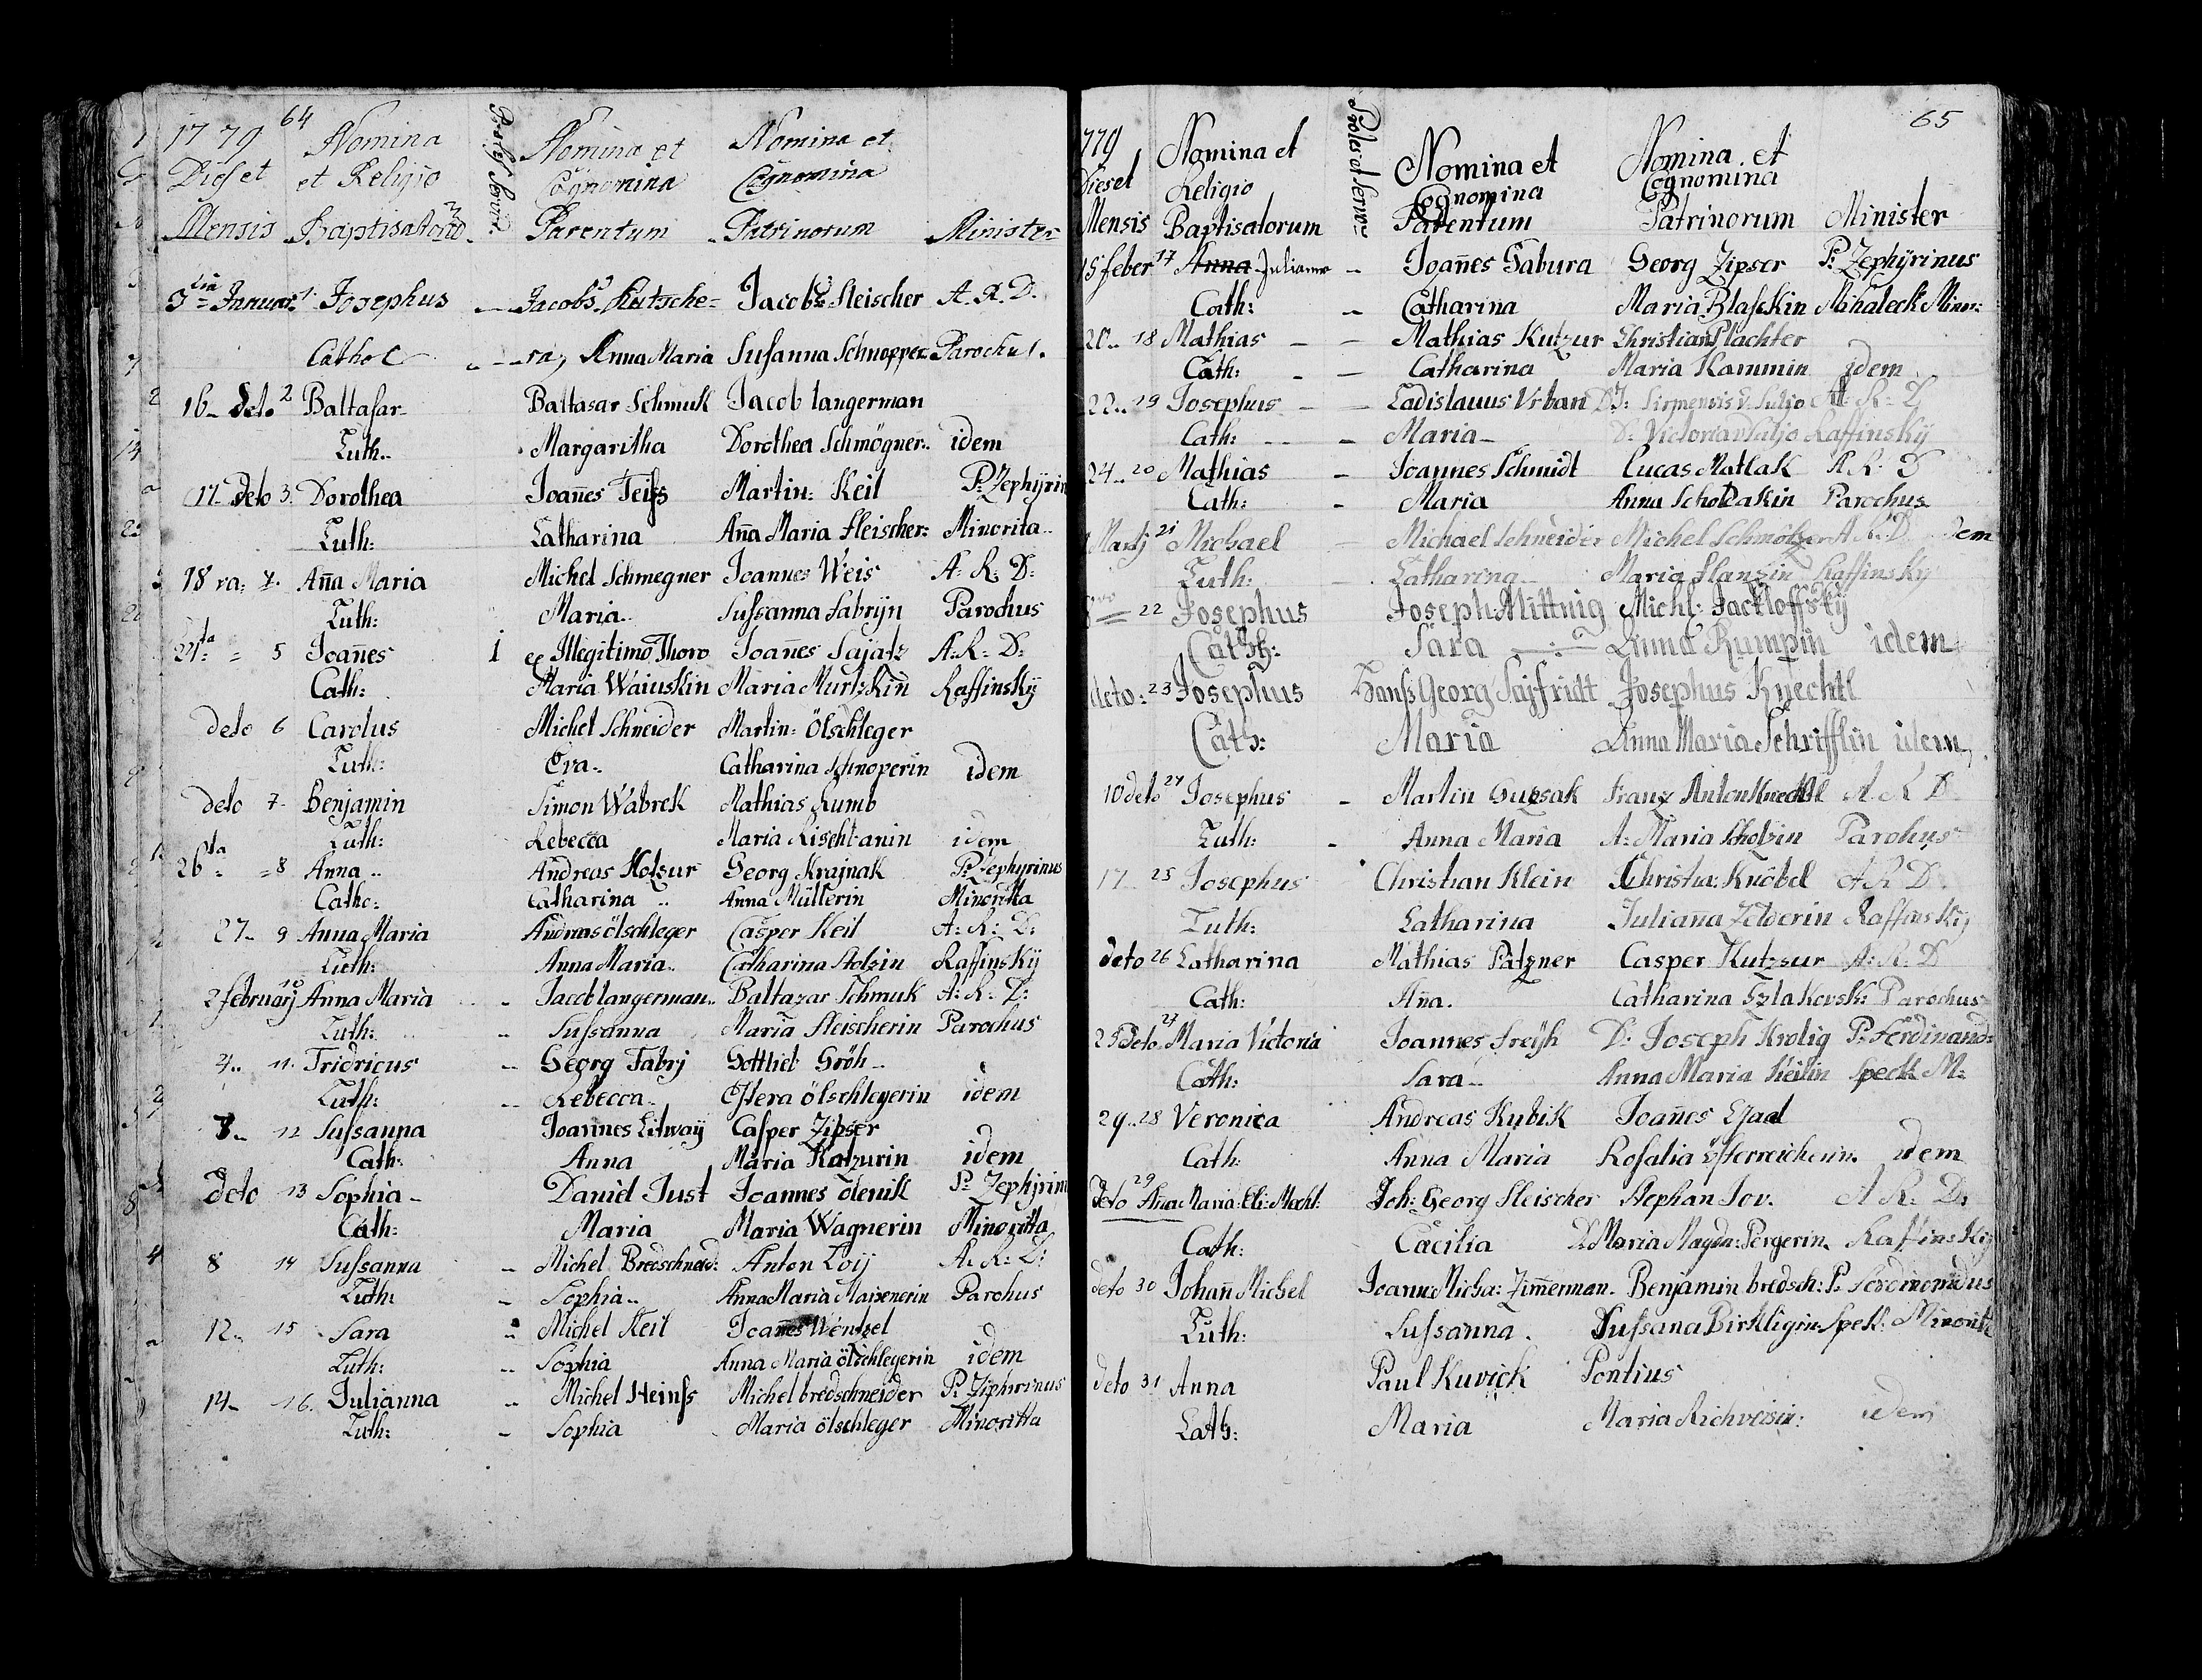 1779 64 Nomina Nomina et Nomina et
Dies et et Religio Cognomina Cognomina
Mensis Baptisatoru Parentum Patrinorum Minister
5ta Januar 1 Josephus Jacobs Kutsche= Jacobs Fleischer A. R. D.
Cathol ra, Anna Maria Susanna Schnopper Parochus.
16 deto 2 Baltasar Baltasar Schmuk Jacob langerman
Luth. Margaritha Dorothea Schmögner idem
17 deto 3. Dorothea Joañes Teiss Martin: Keil P: Zephyrin
Luth: Catharina Aña Maria Fleischer: Minorita
18 va: Aña Maria Michel Schmegner Joannes Weis A: R: D:
Luth: Maria Sussanna Fabryn Parochus
21ta 5 Joañes 1 ex Illegitimo Thoro Joañes Sajatz A: R: D:
Cath: Maria Waiuskin Maria Murtzkiñ Raffinskÿ
deto 6 Carolus Michel Schneider Martin: Ölschleger
Luth: Eva Catharina Schnoperin idem
deto 7 Benjamin Simon Wabrek Mathias Kumb
Luth: Rebecca Maria Rischtanin idem
26ta 8 Anna Andreas Kotzur Georg Krajnak P: Zephyrinus
Catho: Catharina Anna Müllerin Minoritta
27 9 Anna Maria Andreas ölschleger Casper Keil A: R: D:
Luth: Anna Maria Catharina Stolzin Raffinskÿ
2 februarj 10 Anna Maria Jacob langerman Baltazar Schmuk A: R: D:
Luth: Sussanna Maria Fleischerin Parochus
4 11 Fridricus Georg Fabrj Gottlieb Gröh
Luth: Rebecca Estera ölschlegerin idem
8 12 Sussanna Joannes Litwaÿ Casper Zipser
Cath: Anna Maria Katzurin idem
deto 13 Sophia Daniel Just Joannes Olenik P: Zephjrin
Cath: Maria Maria Wagnerin Minoritta
8 14 Sussanna Michel Bredschneid: Anton Loij A: R: D:
Luth: Sophia Anna Maria Maixnerin Parohus
12 15 Sara Michel Keil Joañes Wentzel
Luth: Sophia Anna Maria ölschlegerin idem
14 16. Julianna Michel Heinss Michel bredschneider P: Ziphirinus
Luth: Sophia Maria ölschleger Minoritta
779 Nomina et Nomina et Nomina et 65
Dies et Religio Cognomina Cognomina
Mensis Baptisatorum Parentum Patrinorum Minister
15 feber 17 Anna Julianna Joañes Gabura Georg Zipser P: Zephÿrinus
Cath: Catharina Maria Blasckin Mihaleck Minor:
20 18 Mathias Mathias Kutzur Christian Plachter
Cath: Catharina Maria Kammin idem
22 19 Josephus Ladislauus Vrban
Cath: Maria D: Victoria Raffinskÿ
24 20 Mathias Joannes Schmidt Lucas Matlak A: R: D
Cath: Maria Anna Scholzakin Parochus
Martj 21 Michael Michael Schneider Michel Schmötzer A: R: D idem
Luth: Catharina Maria Glanzin Raffinskÿ
22 Josephus Joseph: Mittnig Michl: Jackloffskÿ
Cath: Sara Anna Rumpin idem
deto: 23 Josephus Hanss Georg Saÿfridt Josephus Knechtl
Cath: Maria Anna Maria Schrifflin idem
10 deto 24 Josephus Martin Gursak Franz Anton Knechtl A. R D
Luth: Anna Maria A: Maria Scholzin Parohus
17 25 Josephus Christian Klein Christia: Knöbel A R D
Luth: Catharina Juliana Zelderin Raffinskÿ
deto 26 Catharina Mathias Patzner Casper Kutzsur A: R: D
Cath: Aña. Catharina Szlakovsk: Parochus
25 deto 27 Maria Victoria Joannes Freÿh D: Joseph Krolig P: Ferdinand:
Cath: Sara Anna Maria Keilin Speck M:
29 28 Veronica Andreas Kubik Joañes
Cath: Anna Maria Rosalia österreicherin idem
deto 29 Aña Maria: Eli: Mecht: Joh: Georg Fleischer Stephan Jov. A R: D:
Cath: Cacilia D Maria Magda: Pergerin Raffinskÿ
deto 30 Johañ Michel Joann Micha: Zim̃erman. Benjamin bredsch: P. Ferdinandus
Luth: Sussanna. Sussana Birkligrin Spek: Minorit
deto 31 Anna Paul Kuvick Pontius
Cath: Maria Maria Richveisin: idem